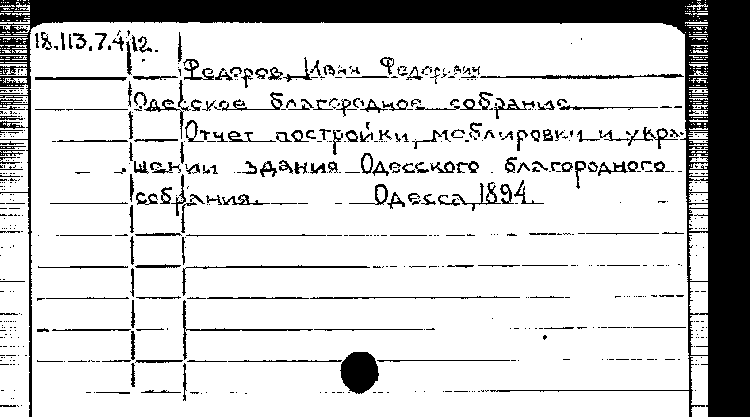 18.113.7.4/12.
Федоров, Иван Федорович
Одесское благородное собрание.
Отчет постройки, меблировки и укра-
шении здания Одесского благородного
собрания. Одесса, 1894.